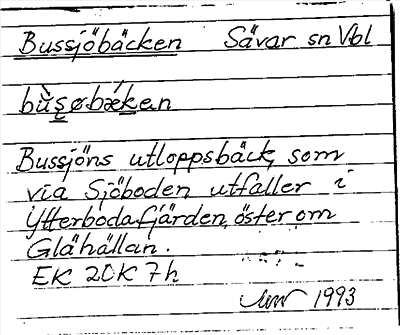 Bussjöbäcken Sävar sn Vbl
bùşøbǽken
Bussjöns utloppsbäck, som
via Sjöboden utfaller i
Ytterbodafjärden, öster om
Glähällan.
EK 20K 7h
1993